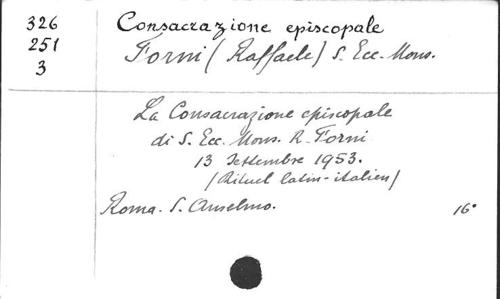 326
251
3
Consacrazione episcopale
Forni (Raffaele) S. Ecc. Mons.
La Consacrazione episcopale
di S. Ecc. Mons. R. Forni
13 Settembre 1953.
(Rituel latin-italien)
Roma. S. Anselmo. 16°